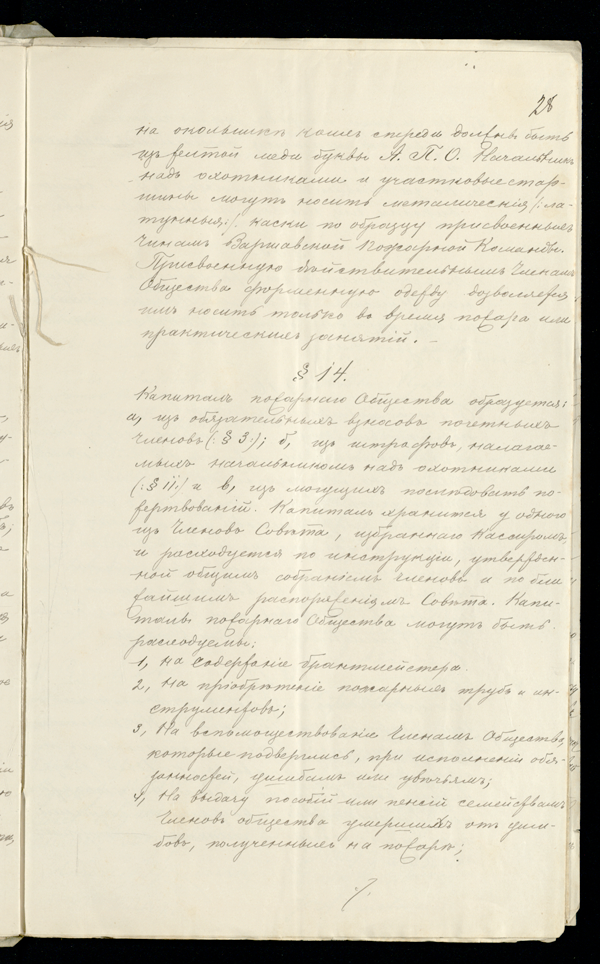 28
на околышкѣ коихъ спереди должны быть
изъ желтой меди буквы А. П. О. Начальникъ
надъ охотниками и участковые стар-
шины могутъ носить металическія /:ла-
тунныя:/ каски по образцу присвоенныхъ
Чинамъ Варшавской Пожарной Команды.
Присвоенную дѣйствительнымъ Членамъ
Общества форменную одежду дозволяется
имъ носить только во время пожара или
практическихъ занятій. —
§ 14.
Капиталъ пожарнаго Общества образуется:
а, изъ обязательныхъ взносовъ почетныхъ
Членовъ (:§ 3:); б, изъ штрафовъ, налагае-
мыхъ начальникомъ надъ охотниками
(:§ 11:) и в, изъ могущихъ послѣдовать по-
жертвованій. Капиталъ хранится у одного
изъ Членовъ Совѣта, избраннаго Кассиромъ
и расходуется по инструкціи, утвержден-
ной общимъ собраніемъ членовъ и по бли
жайшимъ распоряженіямъ Совѣта. Капи-
талы пожарнаго Общества могутъ быть
расходуемы:
1, на содержаніе брантмейстера.
2, на пріобрѣтеніе пожарныхъ трубъ и ин-
струментовъ;
3, На вспомоществованіе Членамъ Общества,
которые подверглись, при исполненіи обя-
занностей, ушибамъ или увѣчьямъ;
4, На выдачу пособій или пенсій семействамъ
Членовъ общества умершихъ отъ уши-
бовъ, полученныхъ на пожарѣ;
./.